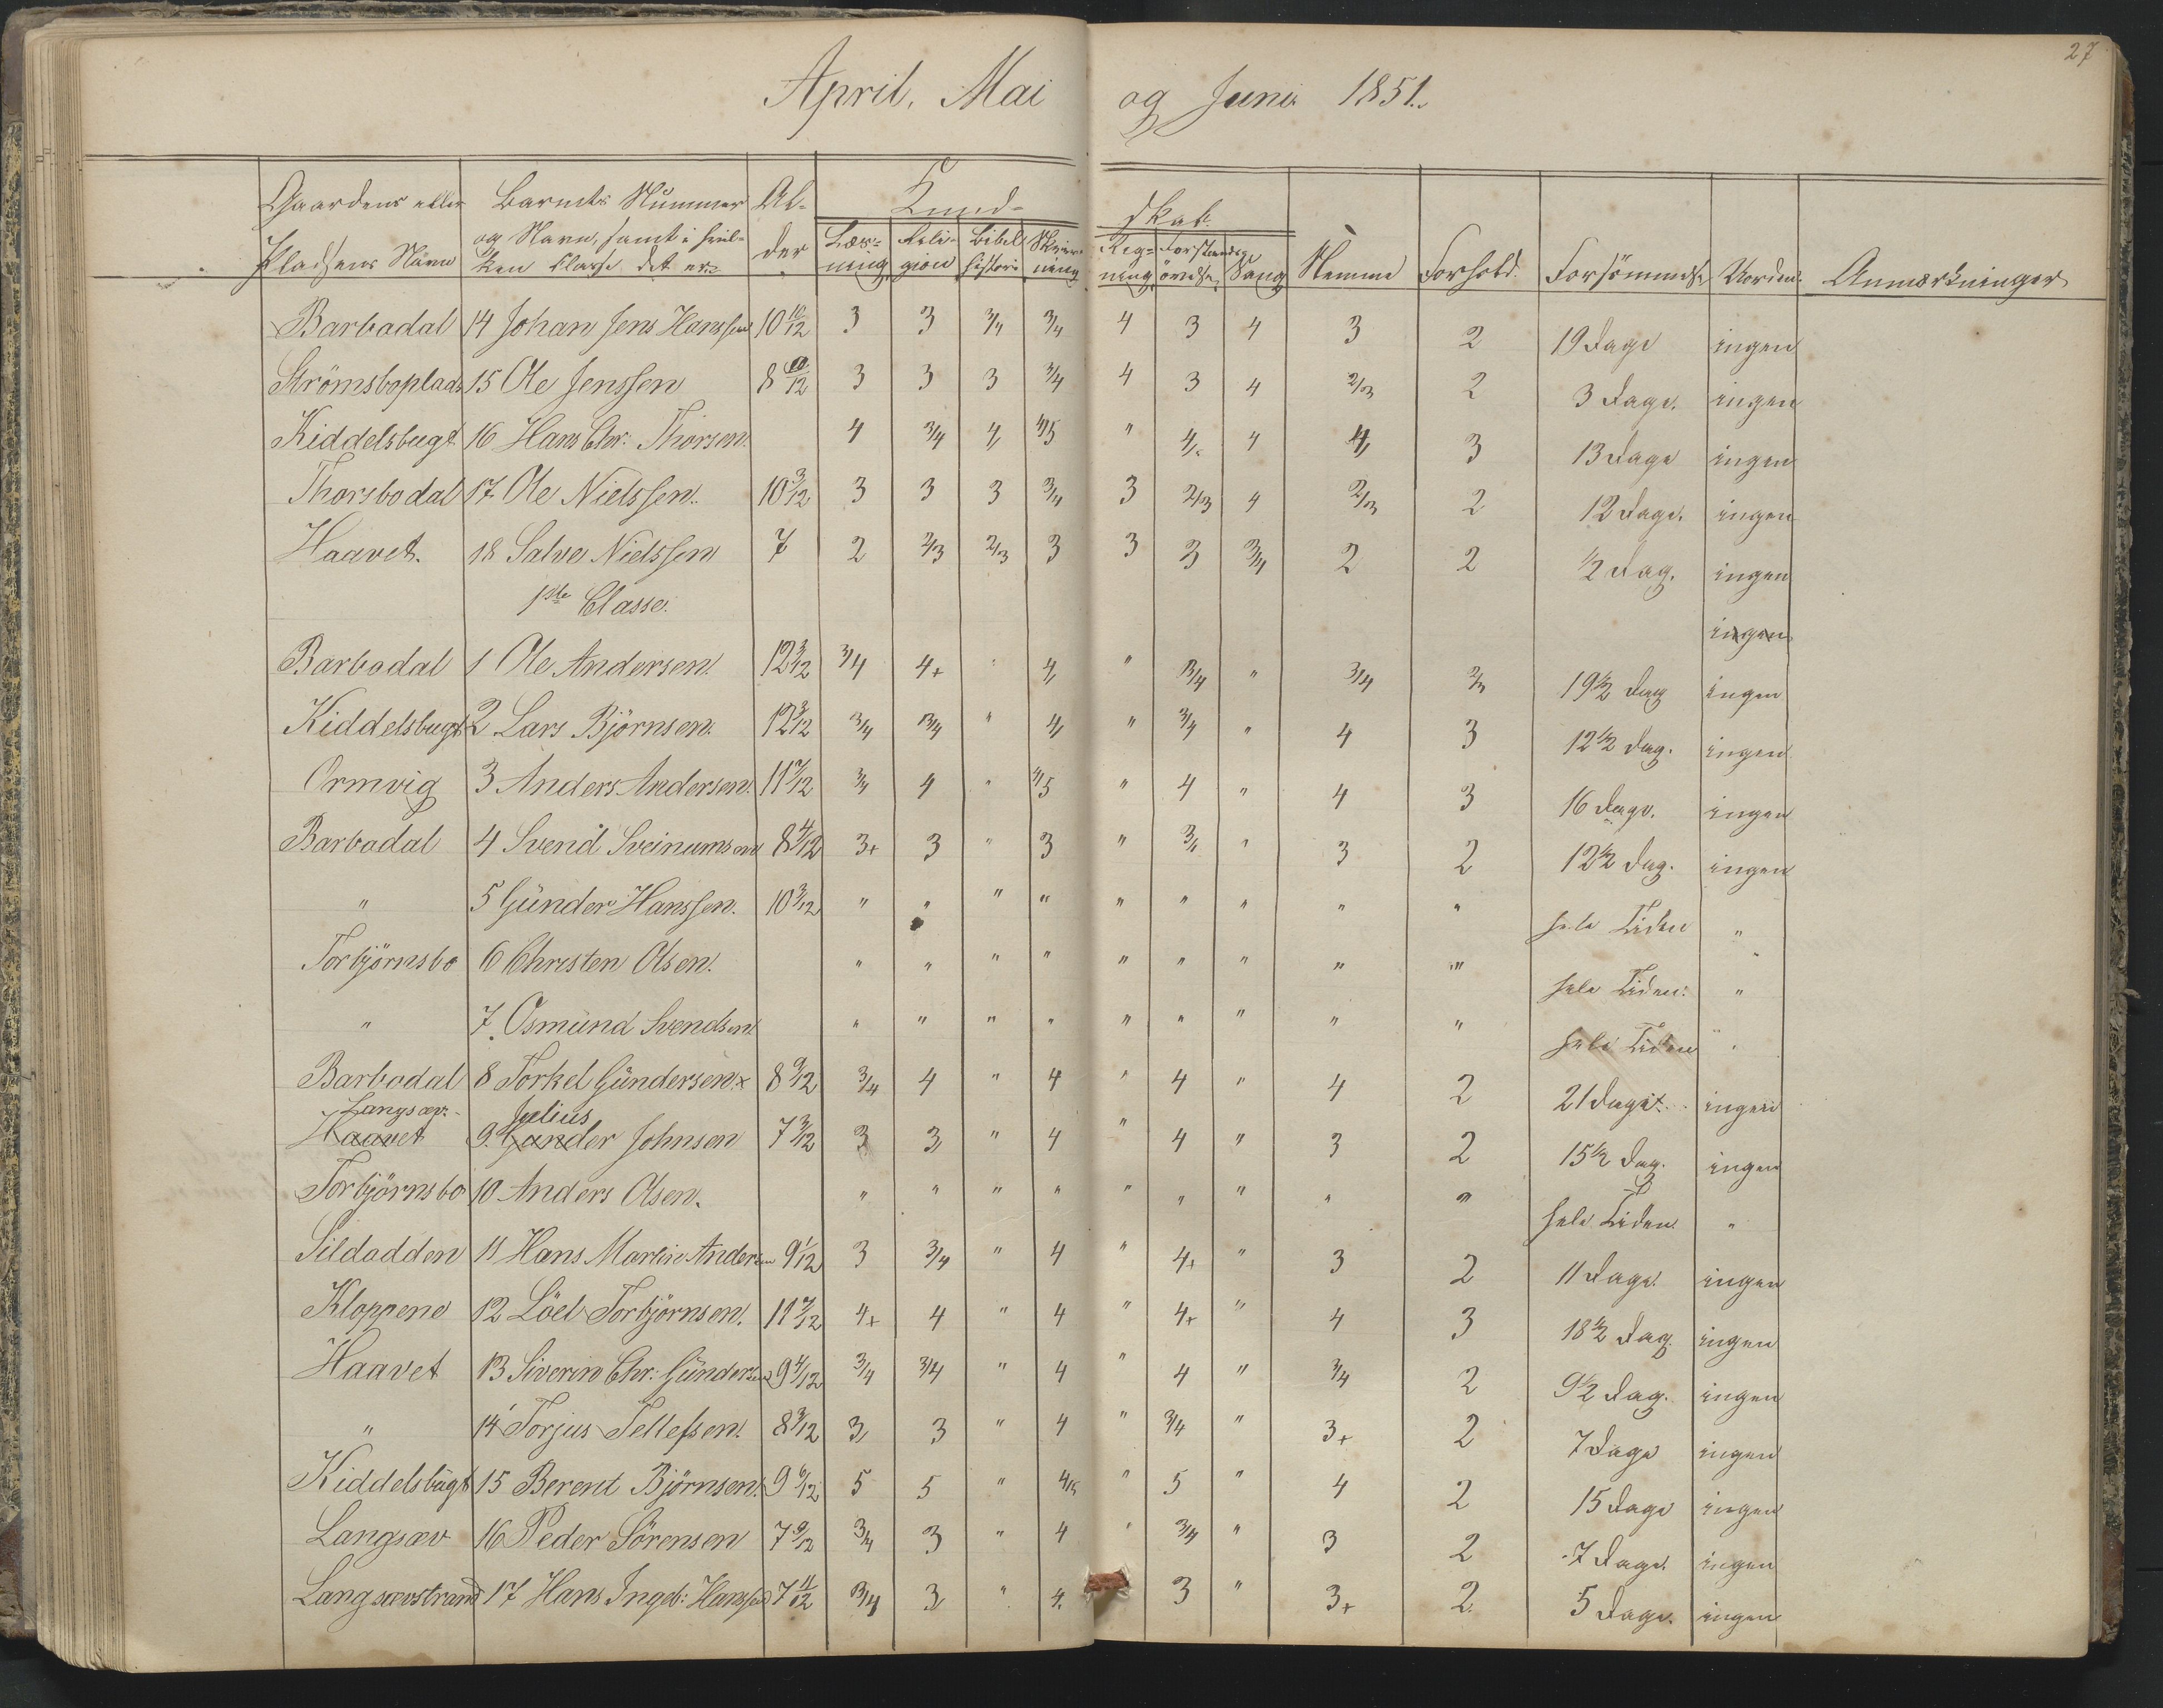 27
April, Mai og Juni 1851.
Gaardens eller Pladsens Navn | Barnets Nummer og Navn, samt i hvilken Classe det er | Alder | Kundskab | Nemme | Forhold | Forsömmelse | Uorden | Anmærkninger
Læsning | Religion | Bibelhistorie | Skrivning | Regning | Forstandsøvelse | Sang
Barbodal 14 Johan Jens Hanssen 10 10/12 3 3 3/4 3/4 4 3 4 3 2 19 Dage ingen
Strömsboplads 15 Ole Jenssen 8 10/12 3 3 3 3/4 4 3 4 2/3 2 3 Dage. ingen
Kiddelsbugt 16 Hans Chr: Thorsen. 4 3/4 4 4/5 " 4 4 4 3 13 Dage ingen
Thorsbodal 17 Ole Nielssen. 10 3/12 3 3 3 3/4 3 2/3 4 2/3 2 12 Dage. ingen
Haavet. 18 Salve Nielssen 7 2 2/3 2/3 3 3 3 3/4 2 2 1/2 Dag. ingen
1ste Classe.
ingen
Barbodal 1 Ole Andersen. 12 3/12 3/4 4+ " 4 " 3/4 " 3/4 2/3 19 1/2 Dag ingen
Kiddelsbugt 2 Lars Björnsen. 12 3/12 3/4 3/4 " 4 " 3/4 " 4 3 12 1/2 Dag. ingen
Ormvig 3 Anders Andersen. 11 7/12 3/4 4 " 4/5 " 4 " 4 3 16 Dage. ingen
Barbodal 4 Svend Sveinumsen 8 4/12 3+ 3 " 3 " 3/4 " 3 2 12 1/2 Dag. ingen
" 5 Günder Hanssen. 10 3/12 " " " " " " " " " hele Tiden "
Torbjörnsbo 6 Christen Olsen. " " " " " " " " " hele Tiden. "
" 7. Osmünd Svendsen " " " " " " " " " hele Tiden "
Barbodal 8 Torkel Gündersen x 8 9/12 3/4 4 " 4 " 4 " 4 2 21 Dage ingen
Langsæv. Julius
Haavet 9. Gunder Johnsen 7 3/12 3 3 " 4 " 4 " 3 2 15 1/2 Dag. ingen
Torbjörnsbo 10 Anders Olsen. " " " " " " " " " hele Tiden "
Sildodden 11 Hans Martin Andersen 9 1/12 3 3/4 " 4 " 4+ " 3 2 11 Dage. ingen
Kloppene 12 Löel Torbjörnsen. 11 7/12 4+ 4 " 4 " 4+ " 4 3 18 1/2 Dag. ingen
Haavet 13 Siverin Chr: Gündersen 9 4/12 3/4 3/4 " 4 " 4 " 3/4 2 9 1/2 Dag. ingen
" 14 Torjus Tellefsen. 8 3/12 3 3 " 4 " 3/4 " 3+ 2 7 Dage ingen
Kiddelsbügt 15 Berent Björnsen. 9 6/12 5 5 " 4/5 " 5 " 4 2 15 Dage ingen
Langsæv 16 Peder Sörensen 7 9/12 3/4 3 " 4 " 3/4 " 3 2 7 Dage. ingen
Langsævstrand 17 Hans Ingeb: Hanssen 7 11/12 3/4 3 " 4. 3 " 3+ 2. 5 Dage. ingen